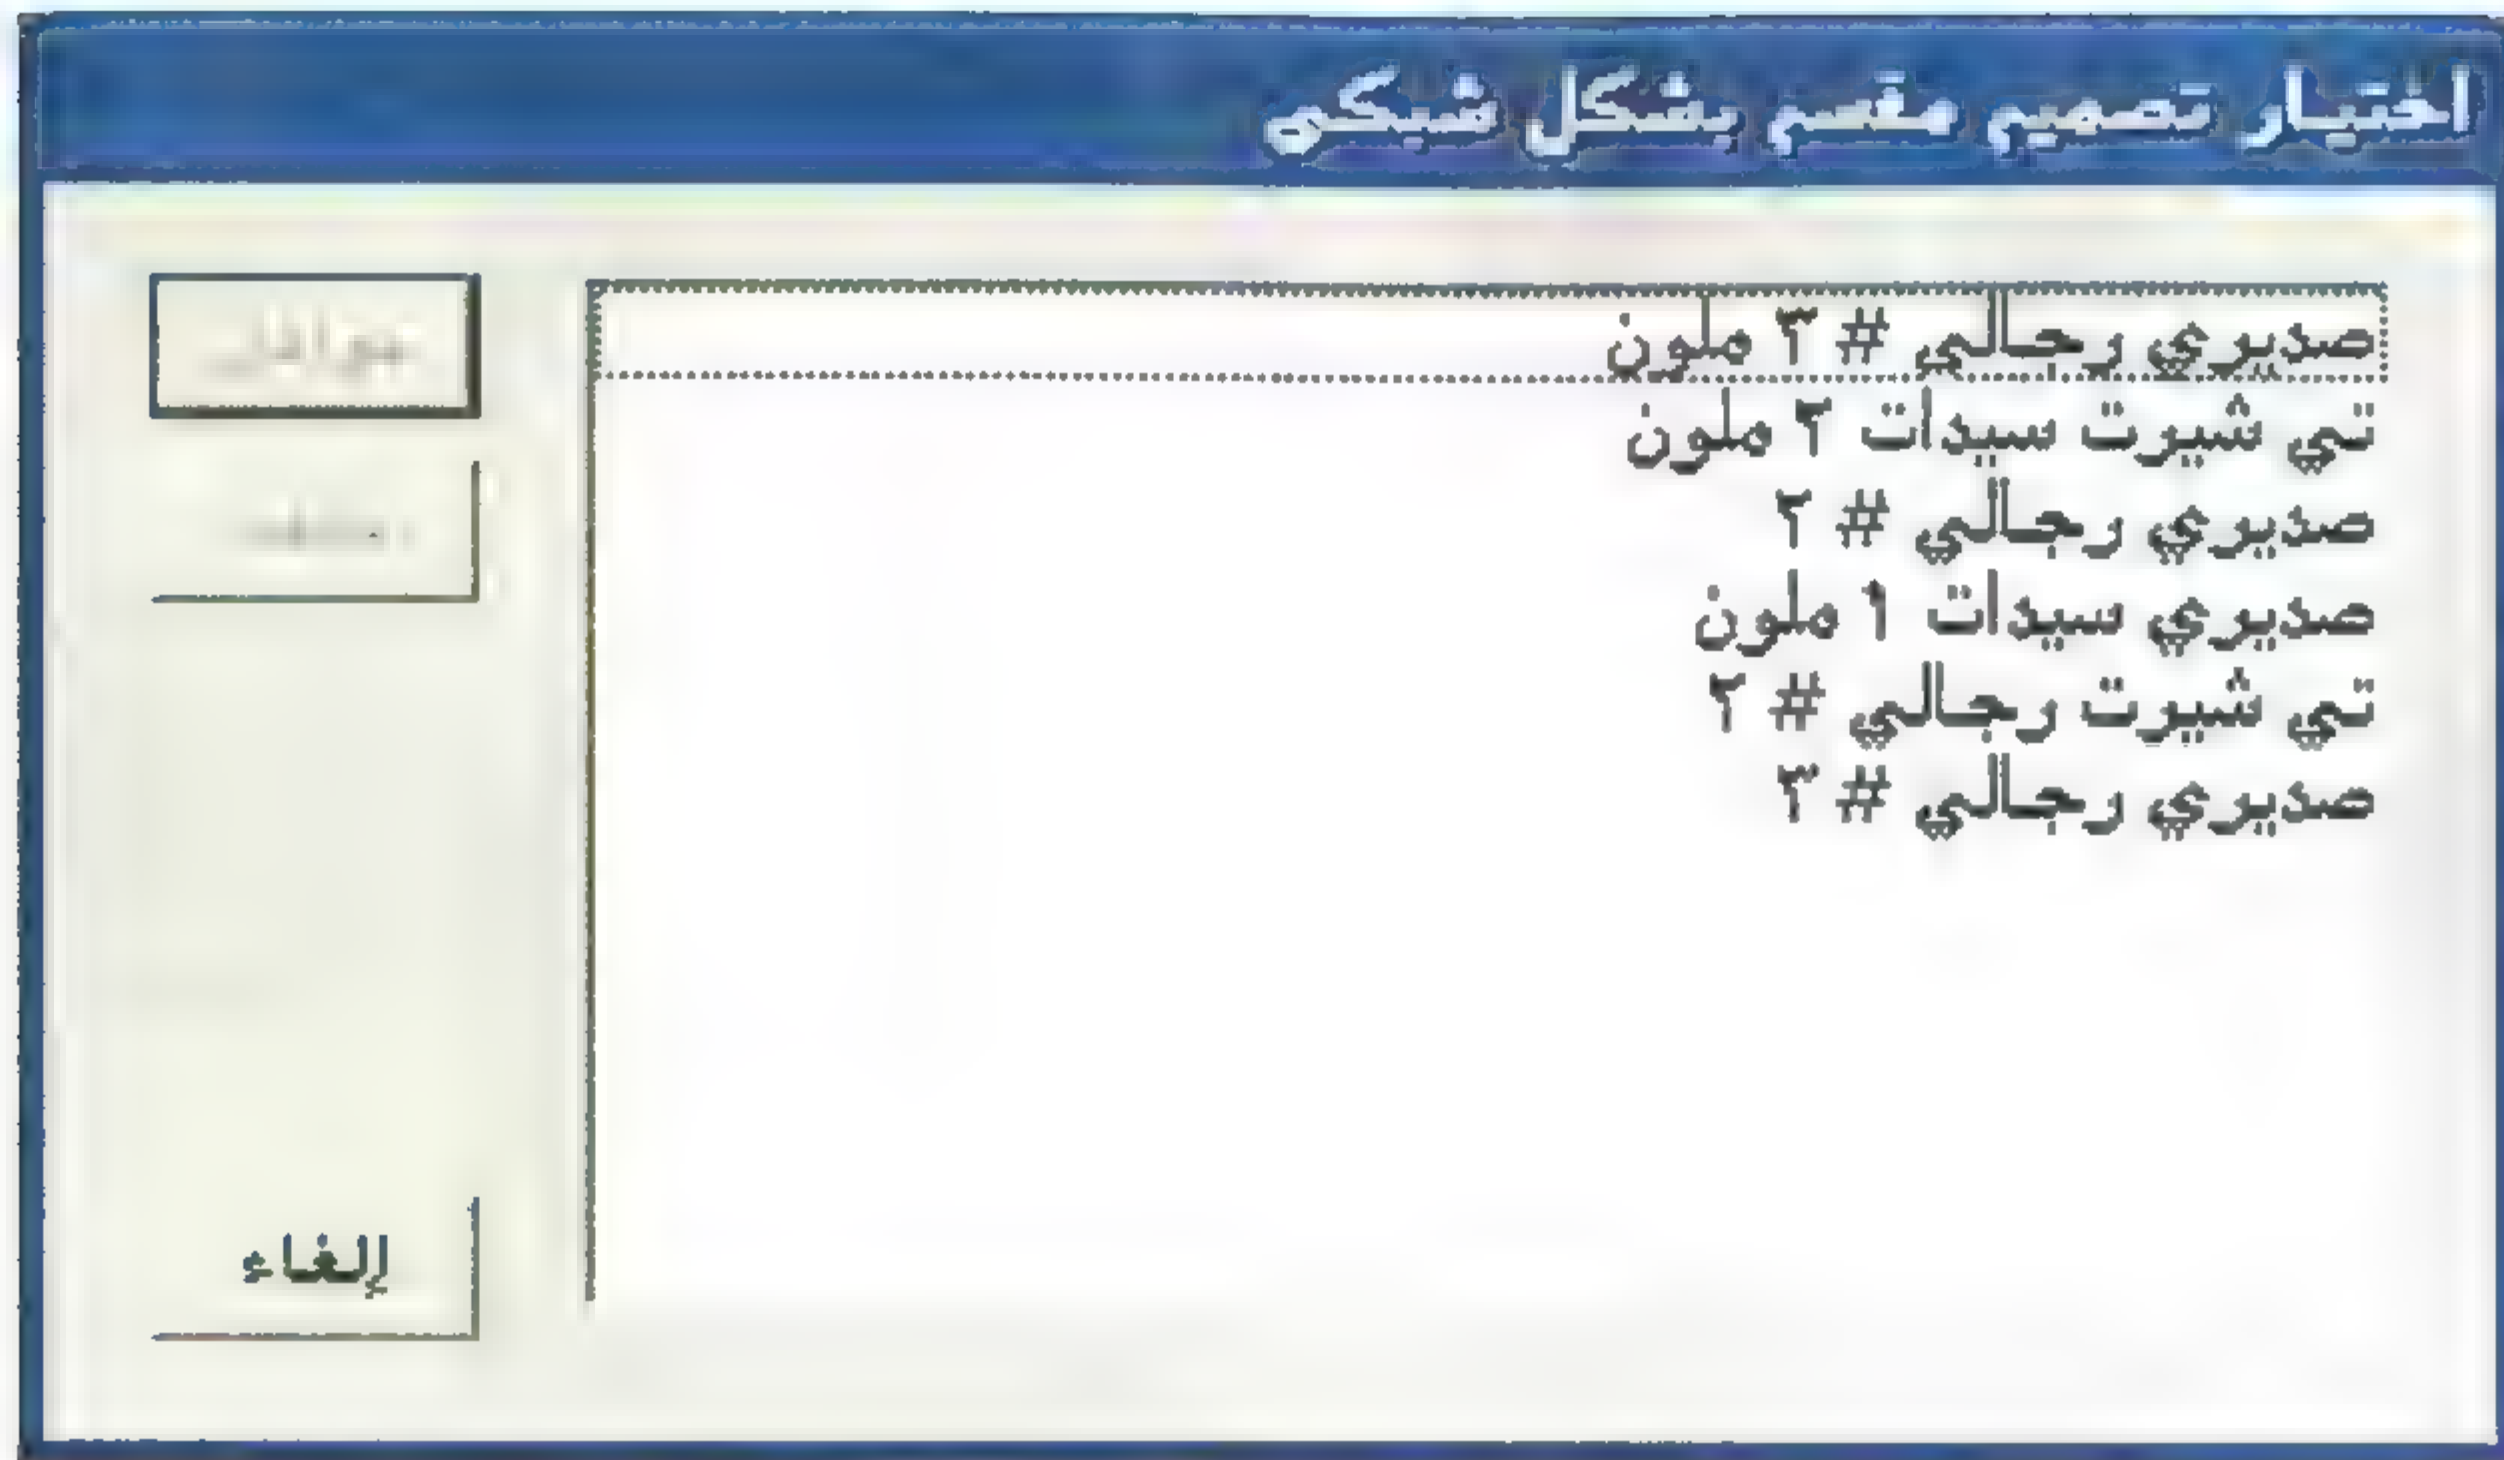 اختيار تصميم مقسم بشكل شبكي
صديري رجالي # ٣ ملون
تي شيرت سيدات ٢ ملون
صديري رجالي # ٢
صديري سيدات ١ ملون
تي شيرت رجالي # ٢
صديري رجالي # ٣
إلغاء